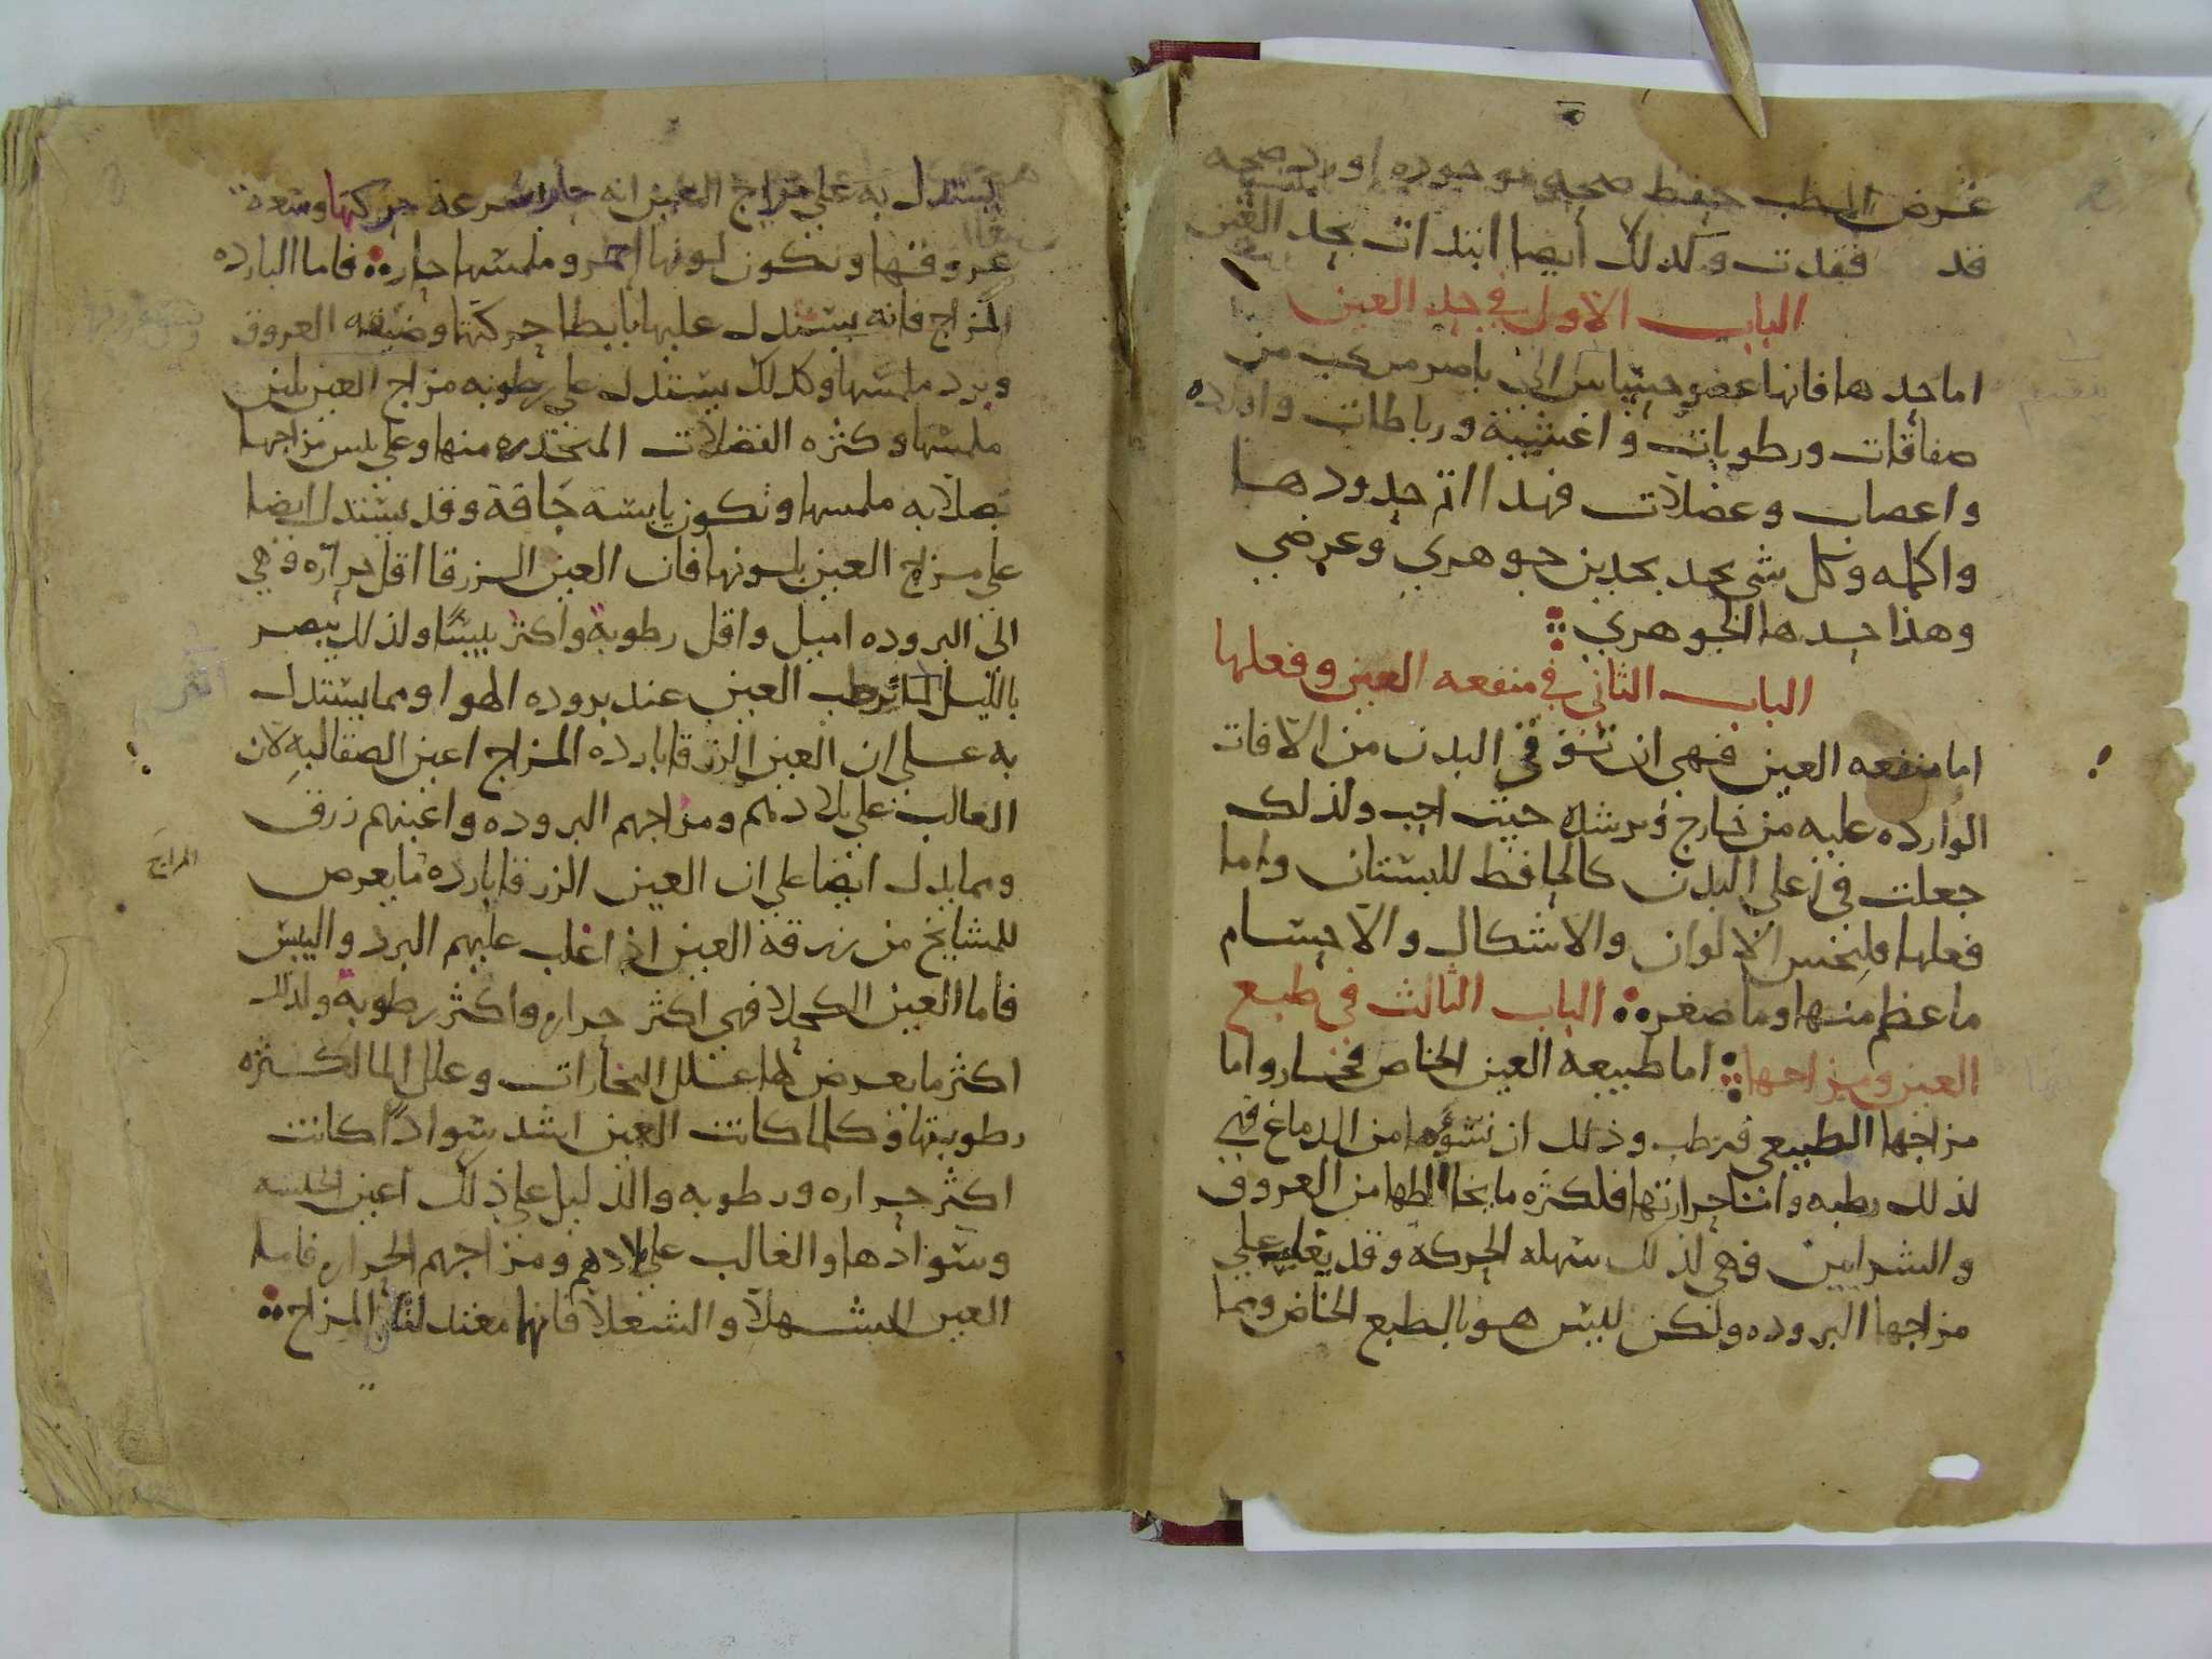 غرض الطب حفظ صحه موجوده او رد صحه
قد فقدت وكذلك أيضا ابتدات بحد العين
الباب الاول في حد العين
اما حدها فانها عضو حساس الى باصر مركب من
صفاقات ورطوبات واغشية ورباطات واورده
واعصاب وعضلات فهذا اتم حدودها
واكمله وكل شي يحد بحدين جوهري وعرضي
وهذا حدها الجوهري
الباب الثاني في منفعه العين وفعلها
اما منفعه العين فهي ان توقى البدن من الافات
الوارده عليه من خارج وترشده حيث احب ولذلك
جعلت في اعلى البدن كالحافظ للبستان واما
فعلها فلتحس الالوان والاشكال والاجسام
ما عظم منها وما صغر الباب الثالث في طبع
العين ومزاجها اما طبيعه العين الخاص فحار واما
مزاجها الطبيعي فرطب وذلك ان نشؤها من الدماغ فهي
لذلك رطبه وانتا حرارتها فلكثره ما يخالطها من العروق
والشرايين فهي لذلك سهله الحركة وقد يغلب على
مزاجها البروده ولكن ليس هو بالطبع الخاص ومما
يستدل به على مزاج العين انه حار سرعة حركتها وسعة
عروقها وتكون لونها احمر وملمسها حاره فاما البارده
المزاج فانه يستدل عليها بابطا حركتها وضيقه العروق
وبرد ملمسها وكذلك يستدل على رطوبه مزاج العين بلين
ملمسها وكثره الفضلات المنحدره منها وعلى يبس مزاجها
بصلابه ملمسها وتكون يابسة جافة وقد يستدل ايضا
على مزاج العين بلونها فان العين الزرقا اقل حراره وهي
الى البروده اميل واقل رطوبة واكثر يبسًا ولذلك تبصر
بالليل لما ترطب العين عند بروده الهوا ومما يستدل
به على ان العين الزرقا بارده المزاج اعين الصقالبه لان
الغالب على بلادهم ومزاجهم البروده واعينهم زرق
ومما يدل ايضا على ان العين الزرقا بارده ما يعرض
المزاج
للمشايخ من زرقة العين اذا غلب عليهم البرد واليبس
فاما العين الكحلا فهي اكثر حراره واكثر رطوبة ولذلك
اكثر ما يعرض لها علل البخارات وعلل الما لكثره
رطوبتها وكلما كانت العين اشد سوادًا كانت
اكثر حراره ورطوبه والدليل على ذلك اعين الحبشه
وسوادها والغالب على بلادهم ومزاجهم الحراره فاما
العين الشهلا والشعلا فانها معتدلتا المزاج